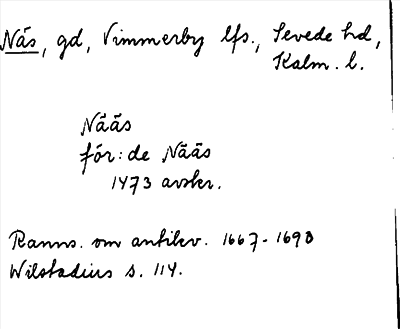 Näs, gd, Vimmerby lfs., Sevede hd,
Kalm. l.
Nääs
för: de Nääs
1473 avskr.
Ranns. om antikv. 1667-1693
Wilstadius s. 114.